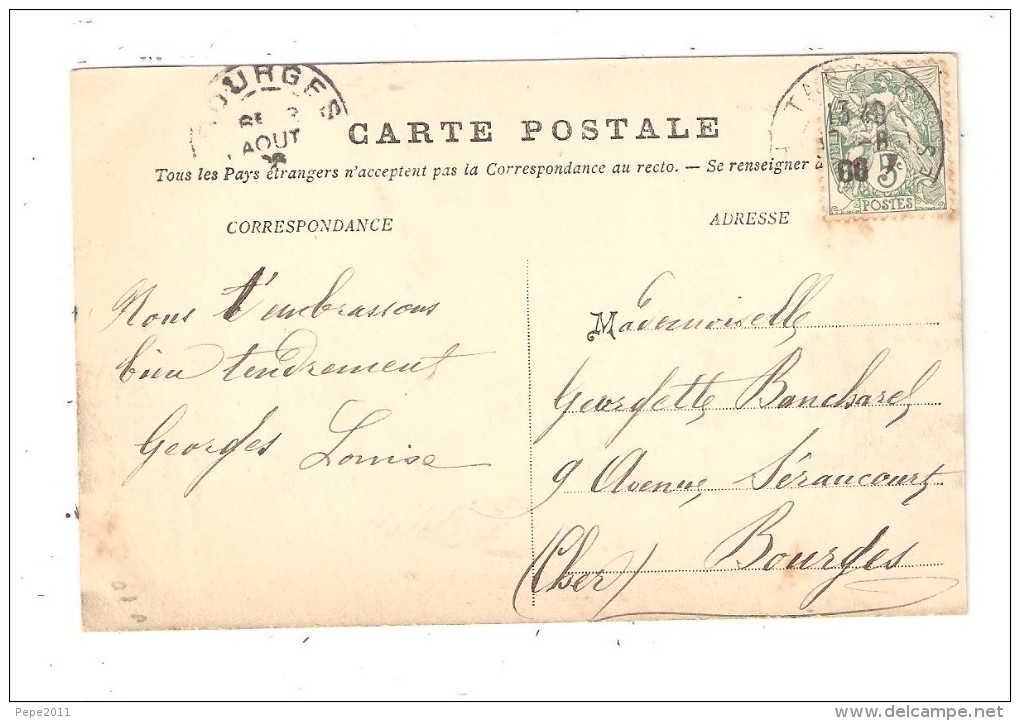 BOURGES
AOUT
CARTE POSTALE
Tous les Pays étrangers n'acceptent pas la Correspondance au recto. — Se renseigner à
5c
POSTES
CORRESPONDANCE
ADRESSE
Nous t'embrassons
bien tendrement
Georges Louise
Mademoiselle
Georgette Bancharel
9 Avenue Séraucourt
Bourges
(Cher)
Pepe2011
delcampe.net